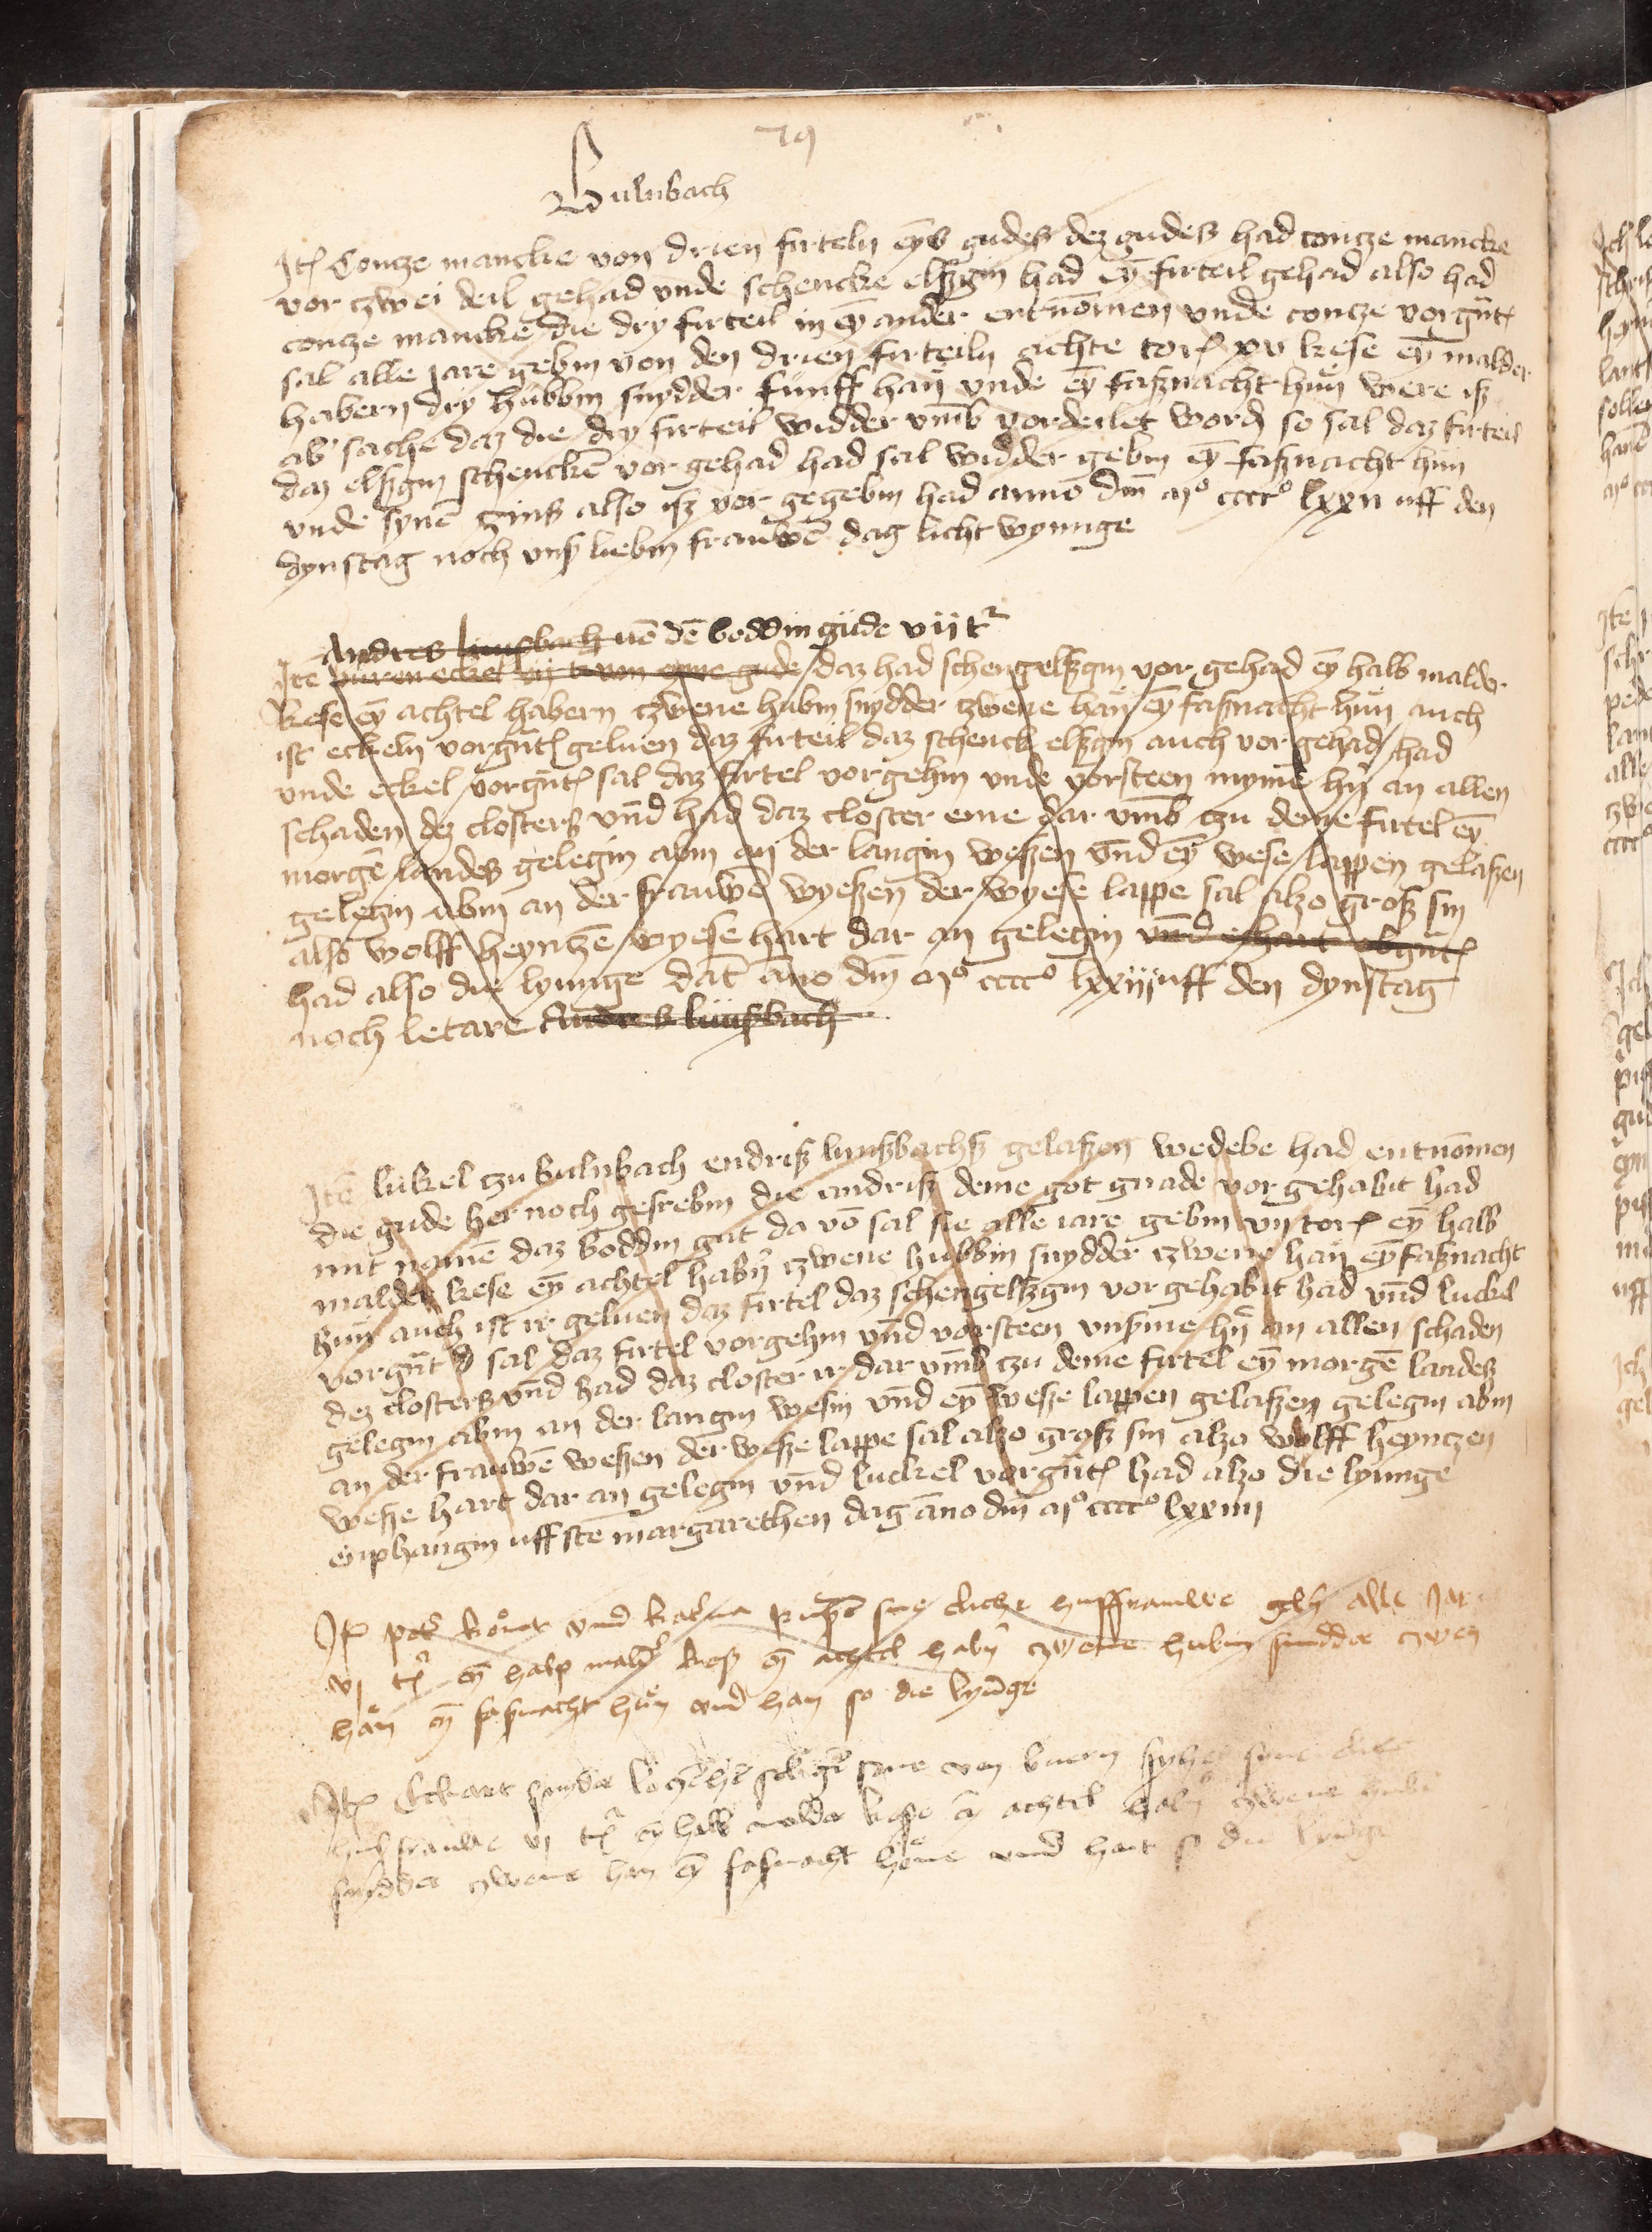 79
Bulnbach
Itē Contze mancke von drien firteln eyns gudes dez gudes had contze mancke
vor zwei deil gehad unde schencke elßgin had eȳ firteil gehad also had
contze mancke die dry firteil in eȳ ander entnōmen unde contze vorgūt
sal alle jare gebin von den drien firteiln achte tor xv kese eȳ malder
habern dry hubbin snydder funff han unde eȳ faßnacht hun were iß
ab sache daz die dry firteil widder umb vordeilet word so sal daz firteil
daz elßgin schenckē vor gehad had sal widder gebin eȳ faßnacht hun
unde synē zinß also iß vor gegebin had anno dm̄ mº ccccº lxxii uff den
dynstag noch unß liebin frauwē dag licht wyunge
Andres lunßbach uō dē boddin gude vii tr
Itē eckel vii von eyme gude daz had schengelßgin vor gehad eȳ halb malder
kese eȳ achtel habern zwene hubin snydder zwene han eȳ faßnacht hun auch
ist eckeln vorgūt geluen daz firteil daz schenck elßgin auch vor gehad had
unde eckel vorgūt sal daz firtel vorgehin unde vorsteen myme hn̄ an allen
schaden dez closters und had daz closter eme dar umb tzu deme firtel eȳ
morgē landes gelegin abin an der langin weßen und eȳ wese lappen gelaßen
gelegin abin an der frauwē wyeßen der wyese lappe sal alzo groß sin
also wolff heyntzē wyese hart dar an gelegin und vorgūt
had also die lyunge dat āno dm̄ mº ccccº lxxiii uff den dynstag
noch letare Andres lunßbach
Itē lukel tzu bulnbach endriß lunßbachß gelaßen wedebe had entnōmen
die gude her noch gesrebin die andriß deme got gnade vor gehabit had
mit namē daz boddin gut da vō sal sie alle iare gebin vii tor eȳ halb
malder kese eȳ achtel habn̄ zwene hubbin snydder zwene han eȳ faßnacht
hun auch ist ir geluen daz firtel daz schengelßgin vor gehabit had und luckel
vorgūt sal daz firtel vorgehin und vorsteen unßme hn̄ an allen schaden
dez closters und had daz closter ir dar umb tzu deme firtel eȳ morgē landeß
gelegin abin an der langin wesin und eȳ weße lappen gelaßen gelegin abin
an der frauwē weßen der weße lappe sal alzo groß sin alzo wolff heyntzen
weße hart dar an gelegin und luckel vorgūt had alzo die lyunge
enphangin uff ste margarethen dag āno dm̄ mº ccccº lxxiiii
Itē petr und katrina sine eliche hußfrauwe gebn alle Jar
vi tr eȳ halp maldr keß eȳ achtel habn̄ zwene hubin snidder zwen
han eȳ faßnacht hun und han so die lyunge
Itē Eckart seligē sone von buern sine eliche
hußfrauwe vi tr eȳ halb malder keße eȳ achtel habn̄ zwene hubin
snydder zwene han eȳ faßnacht hone und hait so die lyunge